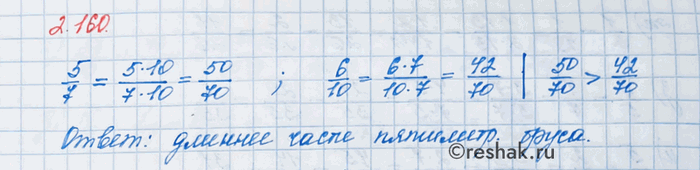 2.160.
5/7 = 5·10/7·10 = 50/70 ; 6/10 = 6·7/10·7 = 42/70 | 50/70 > 42/70
Ответ: длиннее части пятиметр. бруса.
©reshak.ru